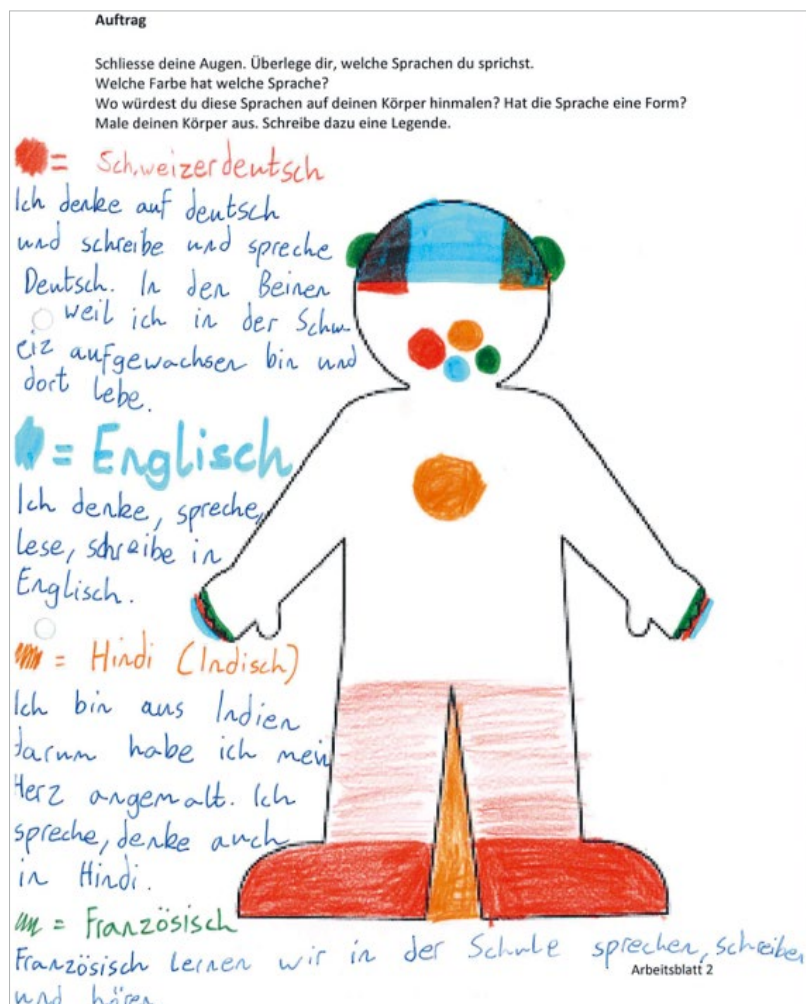 Auftrag
Schliesse deine Augen. Überlege dir, welche Sprachen du sprichst.
Welche Farbe hat welche Sprache?
Wo würdest du diese Sprachen auf deinen Körper hinmalen? Hat die Sprache eine Form?
Male deinen Körper aus. Schreibe dazu eine Legende.
= Schweizerdeutsch
Ich denke auf deutsch
und schreibe und spreche
Deutsch. In den Beinen
weil ich in der Schw
eiz aufgewachsen bin und
dort lebe.
= Englisch
Ich denke, spreche,
lese, schreibe in
Englisch.
= Hindi (Indisch)
Ich bin aus Indien
darum habe ich mein
Herz angemalt. Ich
spreche, denke auch
in Hindi.
= Französisch
Französisch lernen wir in der Schule sprechen, schreiben
und hören
Arbeitsblatt 2